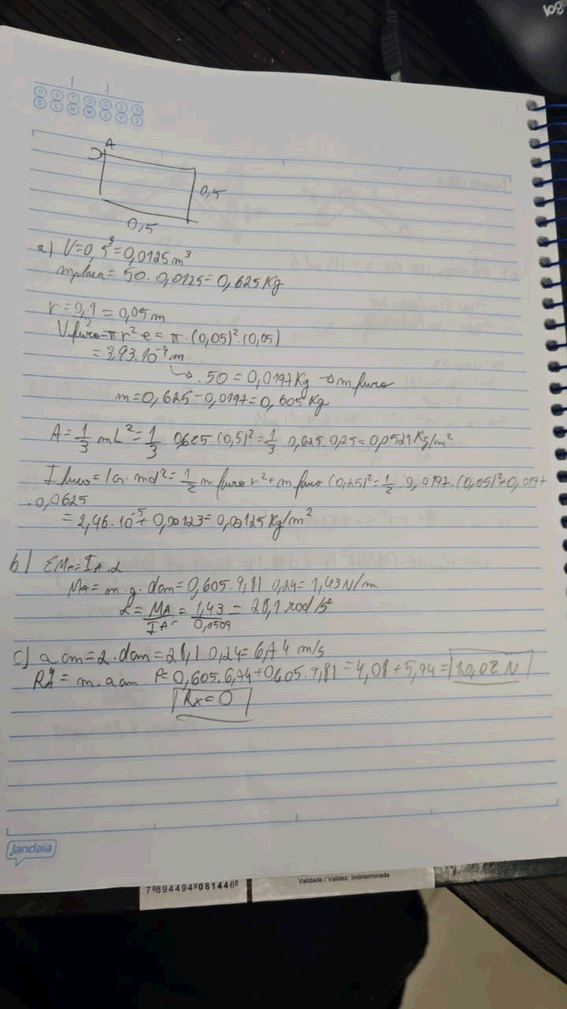 A
0,5
0,5
a) V=0,5³=0,0125m³
mplaca = 50. 0,0125=0,625Kg
r=0,1=0,05m
2
Vfuro=πr²e=π.(0,05)².(0,05)
=3,93.10⁻⁴m
↳.50=0,0197Kg → mfuro
m=0,625-0,0197=0,605Kg
A=1/3 mL²=1/3 0,625(0,5)²=1/3.0,625.0,25=0,0521Kg/m²
I furo= md²=1/2 mfuro r²+mfuro(0,25)²=1/2.0,0197.(0,05)²+0,0197
.0,0625
=2,46.10⁻⁵+0,00123=0,00125Kg/m²
b) ΣMA=IA.α
MA=m.g.dcm=0,605.9,81.0,24=1,43N/m
α=MA/IA=1,43/0,0509=28,1rad/s²
c) acm=2.dcm=28,1.0,24=6,74m/s
RAy=m.acm P=0,605.6,74+0,605.9,81=4,08+5,94=10,02N
Rx=0
Jandaia
7 898449 4081446
Validade / Validez: Indeterminada